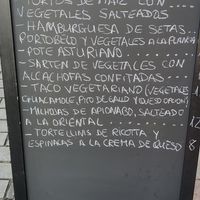 TORTOS DE MAIZ CON
VEGETALES SALTEADOS
- HAMBURGUESA DE SETAS..
PORTOBELO Y VEGETALES A LA PLANCHA
- POTE ASTURIANO
- SARTEN DE VEGETALES CON
ALCACHOFAS CONFITADAS ---
- TACO VEGETARIANO (VEGETALES
GUACAMOLE, PICO DE GALLO Y QUESO
- MILHOJAS DE APIONABO, SALTEADO
A LA ORIENTAL
- TORTELLINIS DE RICOTTA Y
ESPINACAS A LA CREMA DE QUESO 8